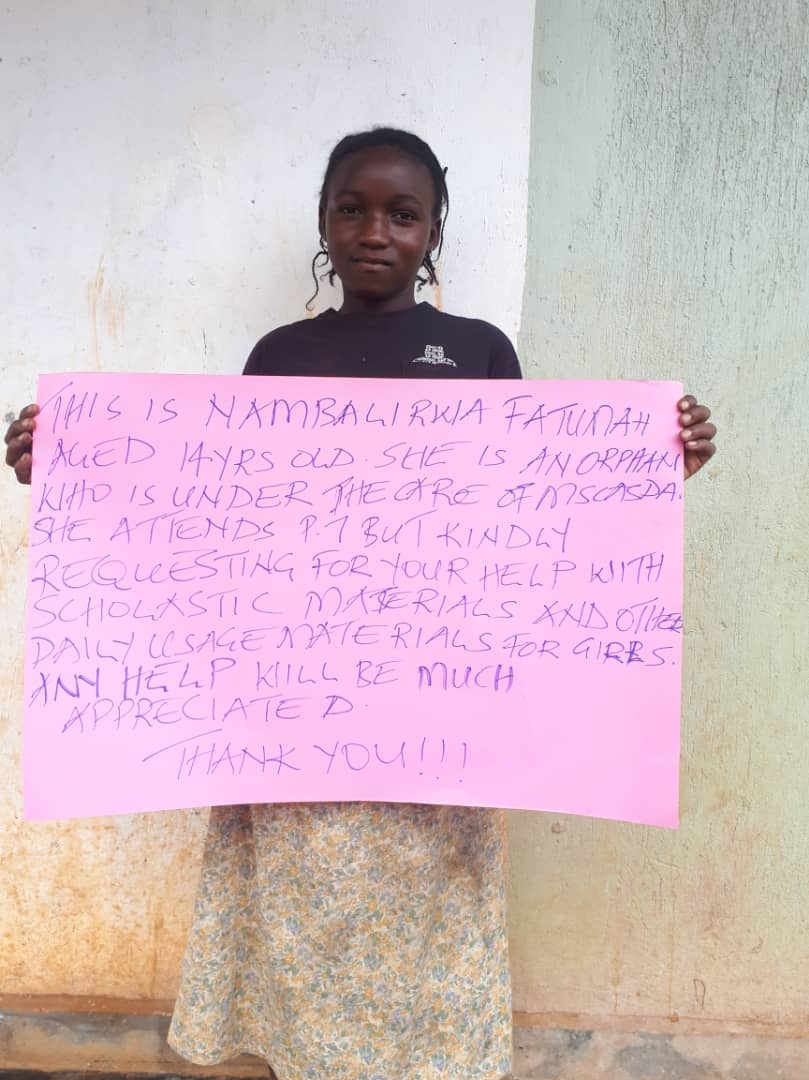 THIS IS NAMBALIRWA FATUMAH
AGED 14YRS OLD. SHE IS AN ORPHAN
WHO IS UNDER THE CARE OF MSCASDA.
SHE ATTENDS P.7 BUT KINDLY
REQUESTING FOR YOUR HELP WITH
SCHOLASTIC MATERIALS AND OTHER
DAILY USAGE MATERIALS FOR GIRLS.
ANY HELP WILL BE MUCH
APPRECIATED.
THANK YOU!!!